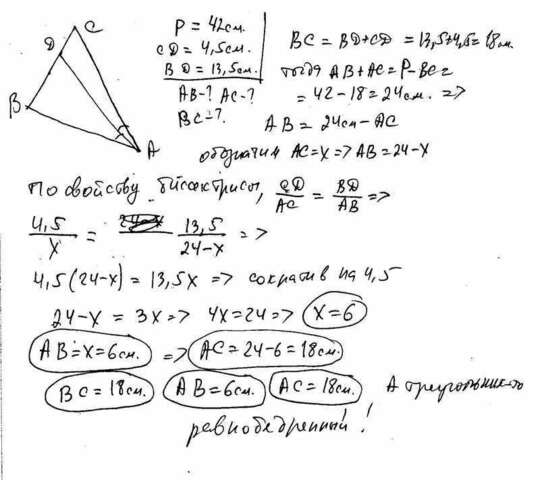 C
D
B
A
P = 42см.
CD = 4,5см.
BD = 13,5см.
AB-? AC-?
BC=?
BC = BD+CD = 13,5+4,5=18см.
тогда AB+AC=P-BC=
= 42-18=24см. =>
AB = 24см-AC
обозначим AC=x=>AB=24-x
По свойству биссектрисы, CD/AC = BD/AB =>
4,5/x = 13,5/24-x =>
4,5(24-x) = 13,5x => сократив на 4,5
24-x = 3x=> 4x=24=> x=6
AB=x=6см. => AC=24-6=18см.
BC=18см. AB=6см. AC=18см. А треугольник-то
равнобедренный!